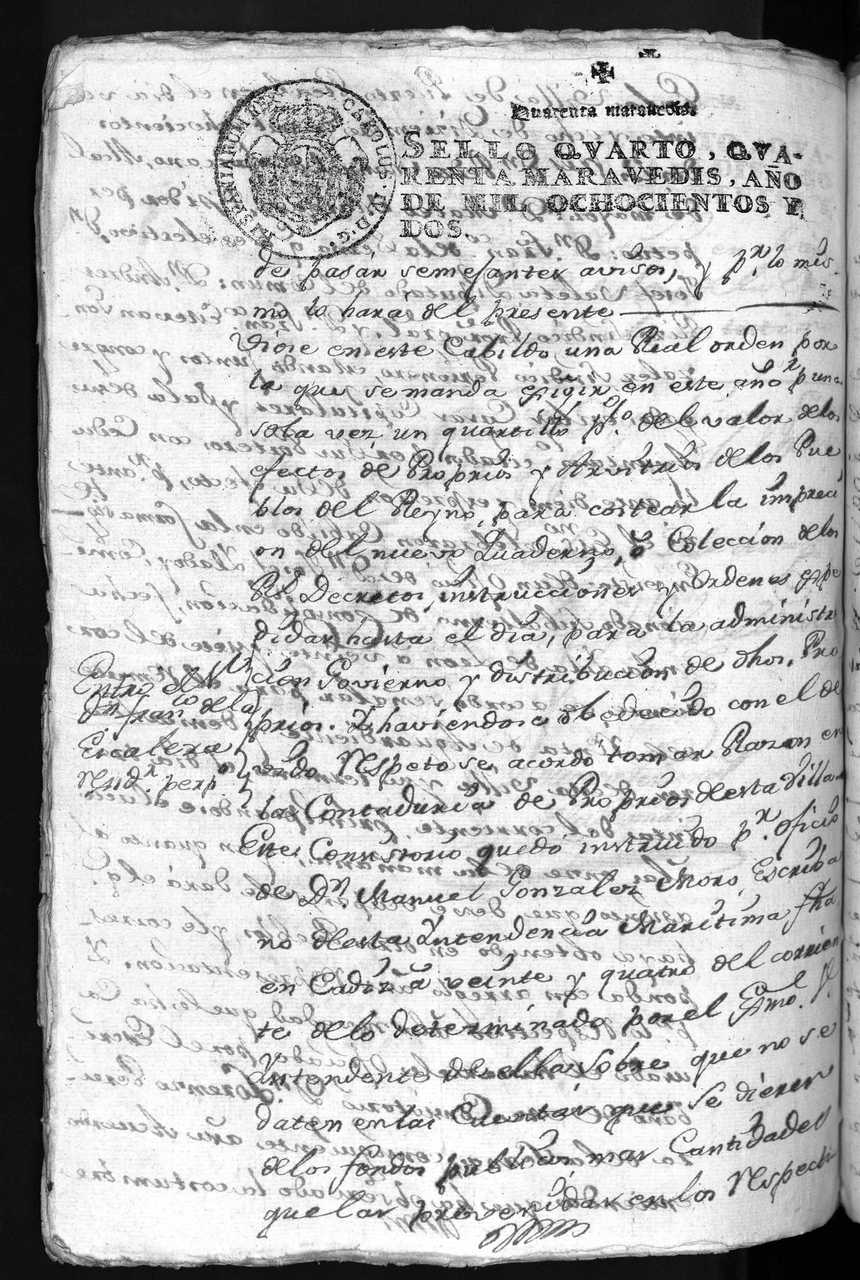 Quarenta maravedis.
SELLO QVARTO, QVA-
RENTA MARAVEDIS, AÑO
DE MIL OCHOCIENTOS Y
DOS.
HISPANIARUM REX CAROLUS IV D. G.
de pasár semejantes avisos, y pr. lo mis
mo lo hará del presente
Viose en este Cabildo una Real orden por
la que se manda exigir en este año pr. una
sola vez un quartillo p%. del valor de los
efectos de Proprios y Arvitrios de los Pue
blos del Reyno, para costear la impreci
on del nuevo Quaderno, ó Coleccion de los
Rs. Decretos, instrucciones y Ordenes espe
didas hasta el dia, para la administra
cion Govierno y distribucion de dhos. Pro
prios. Y haviendose obedecido con el de
vido respeto se acordó tomar Razon en
la Contaduria de Proprios de esta Villa
Entró el Sr.
Dn. Franco. de la
Escalera
Rexidr. perpo.
Este Consistorio quedó instruido pr. oficio
de Dn. Manuel Gonzalez Moro, Escriba
no de esta Yntendencia Maritima fha
en Cadiz á veinte y quatro del corrien
te de lo determinado por el Exmo. Sr.
Yntendente de ella sobre que no se
daten en las Cuentas que se dieren
de los fondos publicos mas Cantidades
que las prevenidas en los respecti